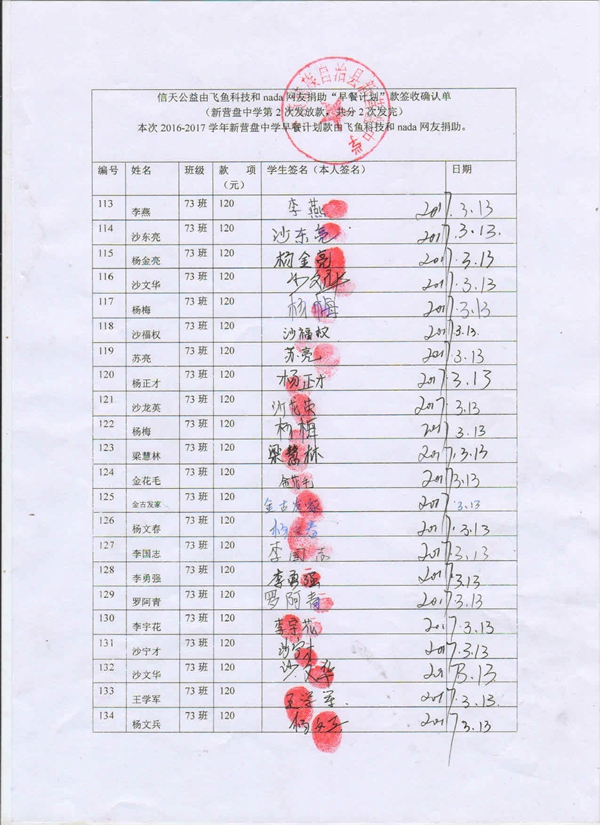 族自治县新营盘中学
信天公益由飞鱼科技和 nada 网友捐助“早餐计划”款签收确认单
（新营盘中学第 2 次发放款，共分 2 次发完）
本次 2016-2017 学年新营盘中学早餐计划款由飞鱼科技和 nada 网友捐助。
编号 姓名 班级 款 项（元） 学生签名（本人签名） 日期
113 李燕 73 班 120 李燕 2017.3.13
114 沙东亮 73 班 120 沙东亮 2017.3.13.
115 杨金亮 73 班 120 杨金亮 2017.3.13
116 沙文华 73 班 120 沙文华 2017.3.13
117 杨梅 73 班 120 杨梅 2017.3.13
118 沙福权 73 班 120 沙福权 2017.3.13.
119 苏亮 73 班 120 苏亮 2017.3.13
120 杨正才 73 班 120 杨正才 2017.3.13
121 沙龙英 73 班 120 2017.3.13
122 杨梅 73 班 120 杨梅 2017.3.13
123 梁慧林 73 班 120 梁慧林 2017.3.13
124 金花毛 73 班 120 金花毛 2017.3.13
125 金古发家 73 班 120 金古发家 2017.3.13
126 杨文春 73 班 120 杨文春 2017.3.13
127 李国志 73 班 120 李国志 2017.3.13
128 李勇强 73 班 120 李勇强 2017.3.13
129 罗阿青 73 班 120 罗阿青 2017.3.13
130 李宇花 73 班 120 李宇花 2017.3.13
131 沙宁才 73 班 120 沙宁才 2017.3.13
132 沙文华 73 班 120 沙文华 2017.3.13
133 王学军 73 班 120 王学军 2017.3.13
134 杨文兵 73 班 120 2017.3.13